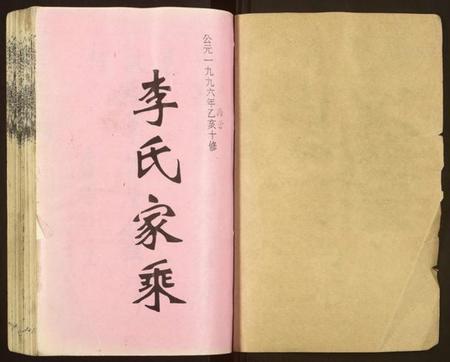 公元一九九六年乙亥十修
李氏家乘